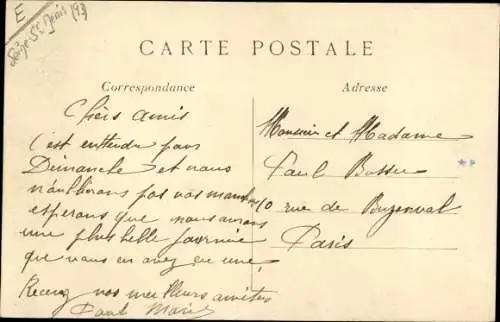 E
Seine-St Denis (93)
CARTE POSTALE
Correspondance
Adresse
Chers amis
C'est entendu pour
Dimanche et nous
n'oublirons pas vos
esperons que nous aurons
une plus belle journée
que vous en avez eu une,
Recevez vos meilleurs amities
Paul Marie
Monsieur et Madame
Paul Bossu
10 rue de Buzenval
Paris